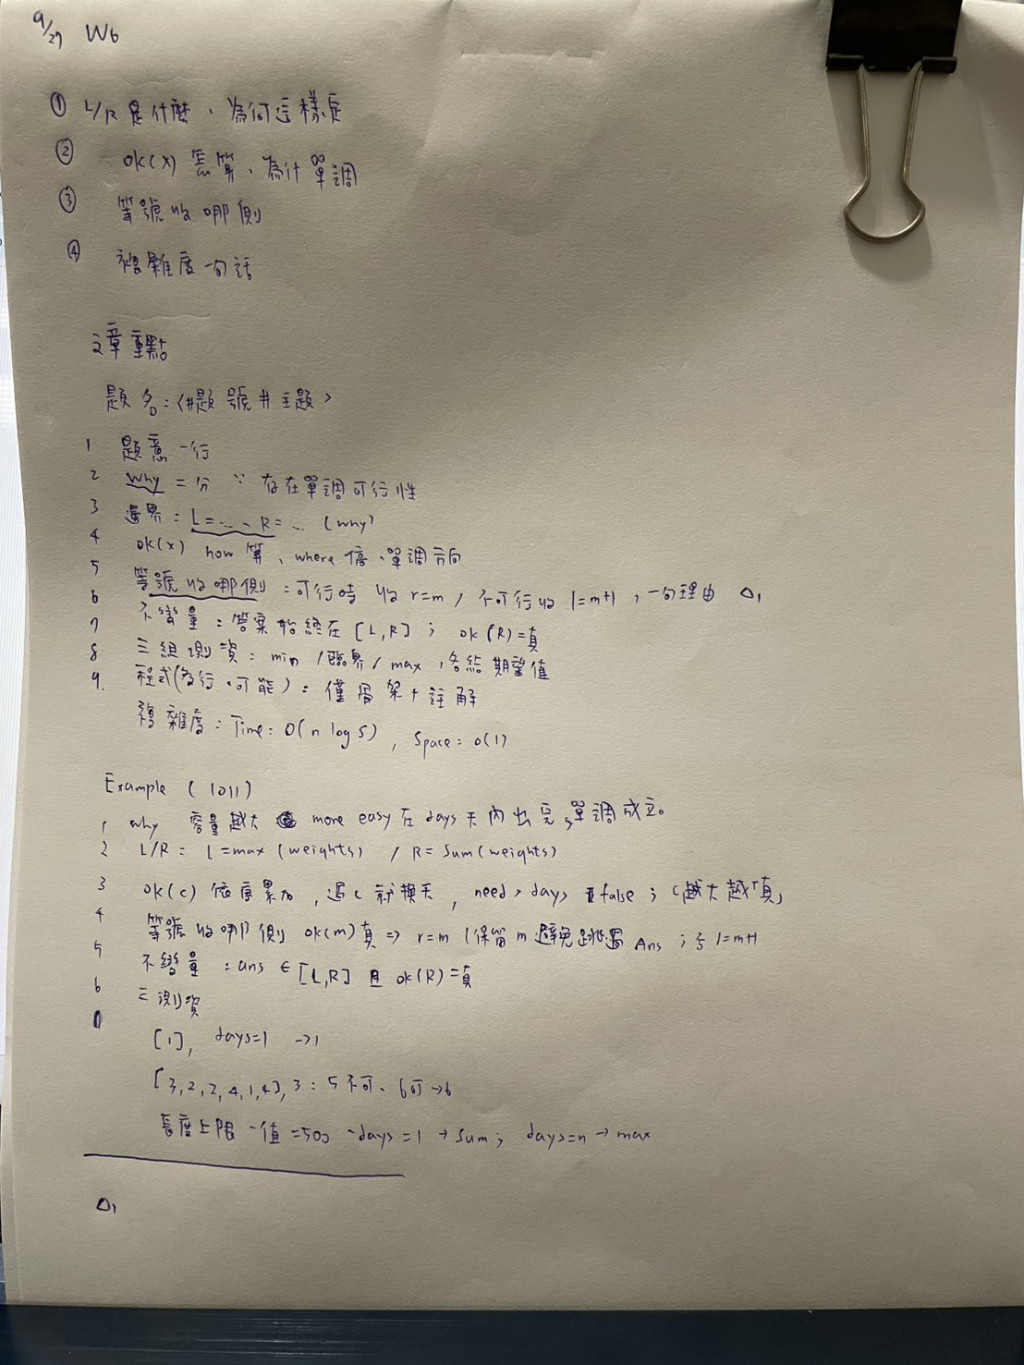 9/27 W6
① L/R 是什麼、為何這樣定
② ok(x) 怎算、為什單調
③ 等號收哪側
④ 複雜度一句話
文章重點
題名:〈#題號 # 主題〉
1 題意一行
2 why = 分 ∵ 存在單調可行性
3 邊界: L=...、R=... (why)
4 ok(x) how 算、where 停、單調方向
5 等號收哪側:可行時 收 r=m / 不可行收 l=m+1 , 一句理由 △1
6 不變量:答案始終在 [L,R] ; ok(R)=真
7 三組測資: min /臨界/ max ,各給期望值
8 程式(行、可能):僅骨架+註解
9. 複雜度: Time: O(n log S) , Space: O(1)
Example ( 1011)
1 why 容量越大 more easy 在 days 天內出完,單調成立。
2 L/R: L=max (weights) / R= Sum(weights)
3 ok(c) 依序累加 ,過 c 就換天 , need > days false ; c越大越「真」
4 等號收哪側 ok(m)真 => r=m (保留 m 避免跳過 Ans ; 否 l=m+1
5 不變量 : ans ∈ [L,R] 且 ok(R)=真
6 三測資
[1], days=1 →1
[3,2,2,4,1,4], 3 : 5不可、6可→6
長度上限 一值=500 days=1 → sum; days=n → max
△1